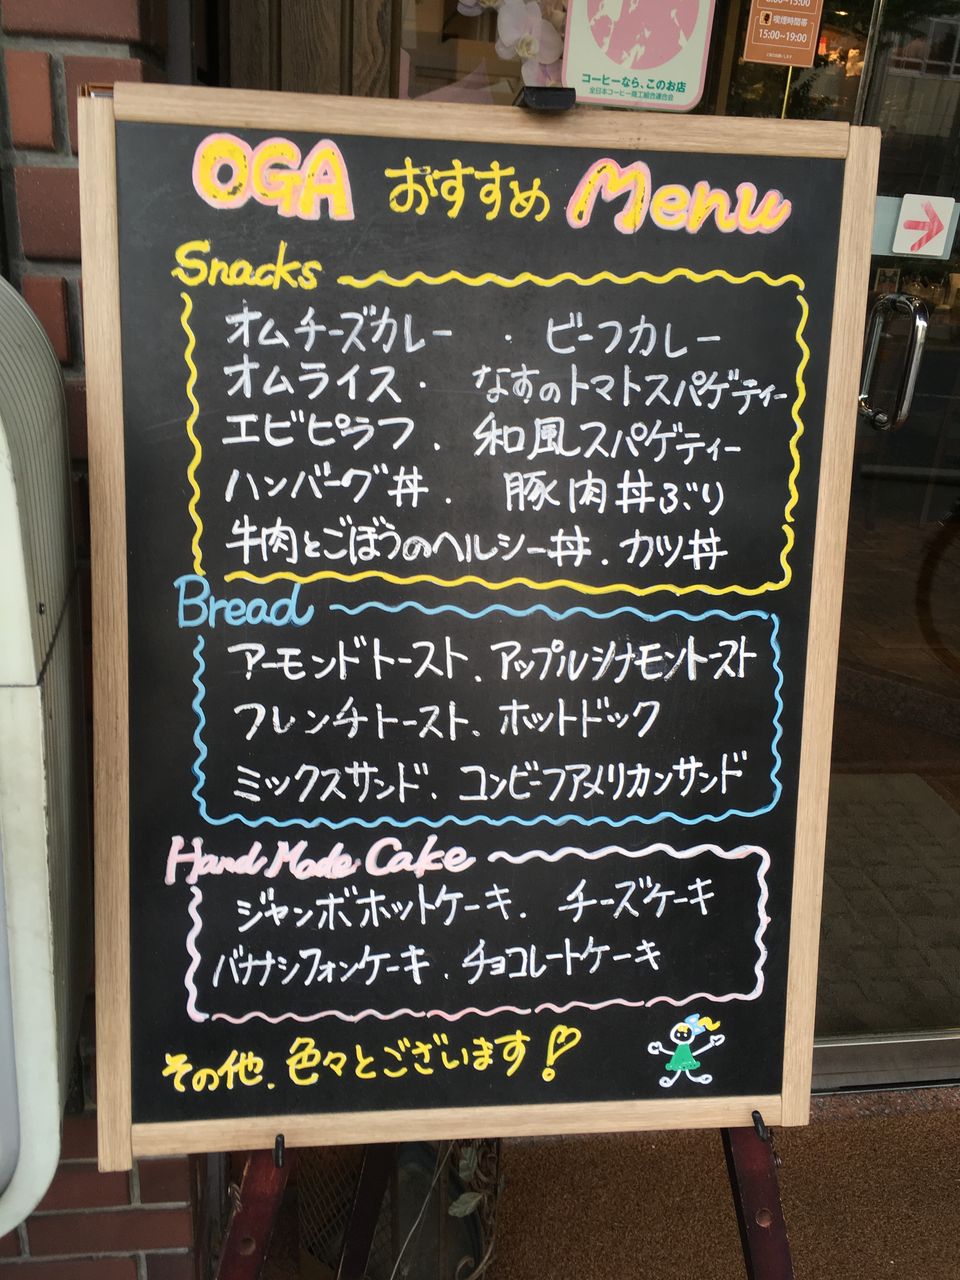 コーヒーなら、このお店
全日本コーヒー商工組合連合会
喫煙時間帯
15:00~19:00
OGA おすすめ Menu
Snacks
オムチーズカレー ・ ビーフカレー
オムライス・ なすのトマトスパゲティー
エビピラフ . 和風スパゲティー
ハンバーグ丼 . 豚肉丼ぶり
牛肉とごぼうのヘルシー丼 . カツ丼
Bread
アーモンドトースト、アップルシナモントースト
フレンチトースト、ホットドック
ミックスサンド. コンビーフアメリカンサンド
Hand Made Cake
ジャンボホットケーキ. チーズケーキ
バナナシフォンケーキ . チョコレートケーキ
その他、色々とございます!